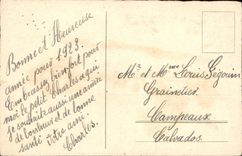 Bonne et Heureuse
année pour 1923.
Embrassez bien fort pour
moi le petit Charles à qui
je souhaite aussi une année
de bonheur et de bonne
santé votre ami
Charles
Mr et Mme Louis Ségouin
Grainetier
Campeaux
Calvados